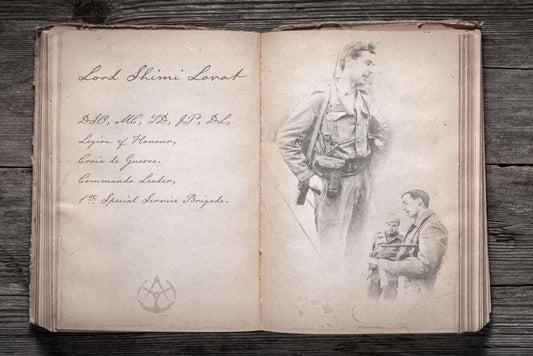 Lord Shimi Lovat
DSO, MC, TD, JP, DL,
Legion of Honour,
Croix de Guerre.
Commando Leader,
1st Special Service Brigade.